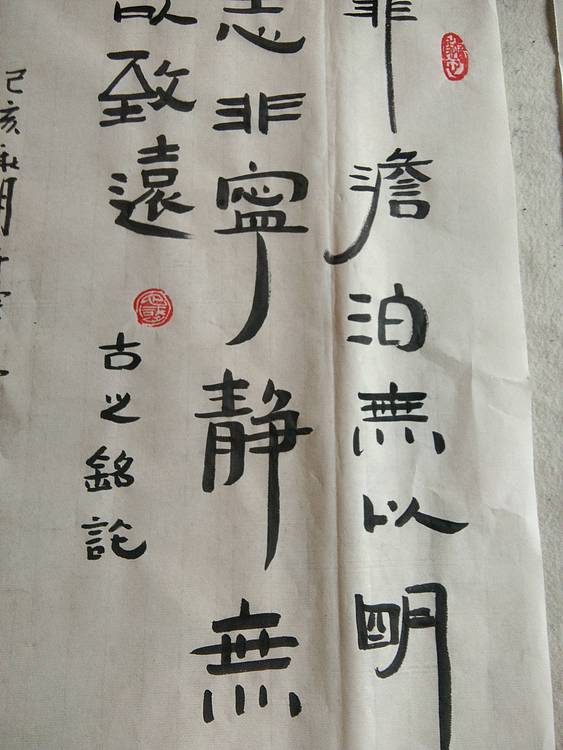 非澹泊無以明
志非寧静無
以致遠
古之銘
己亥秋月